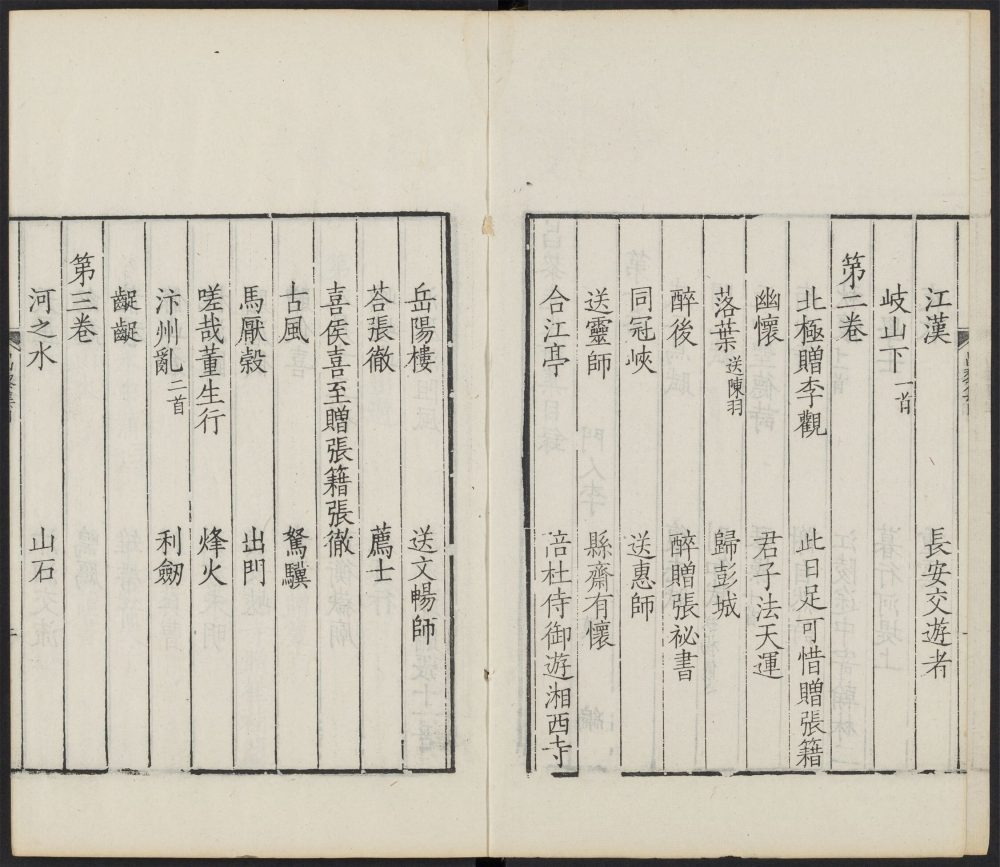 江漢　長安交遊者
岐山下一首
第二卷
北極贈李觀　此日足可惜贈張籍
幽懷　君子法天運
落葉送陳羽　歸彭城
醉後　醉贈張祕書
同冠峽　送惠師
送靈師　縣齋有懷
合江亭　陪杜侍御遊湘西寺
岳陽樓　送文暢師
荅張徹　薦士
喜侯喜至贈張籍張徹
古風　駑驥
馬厭穀　出門
嗟哉董生行　烽火
汴州亂二首　利劒
齪齪
第三卷
河之水　山石